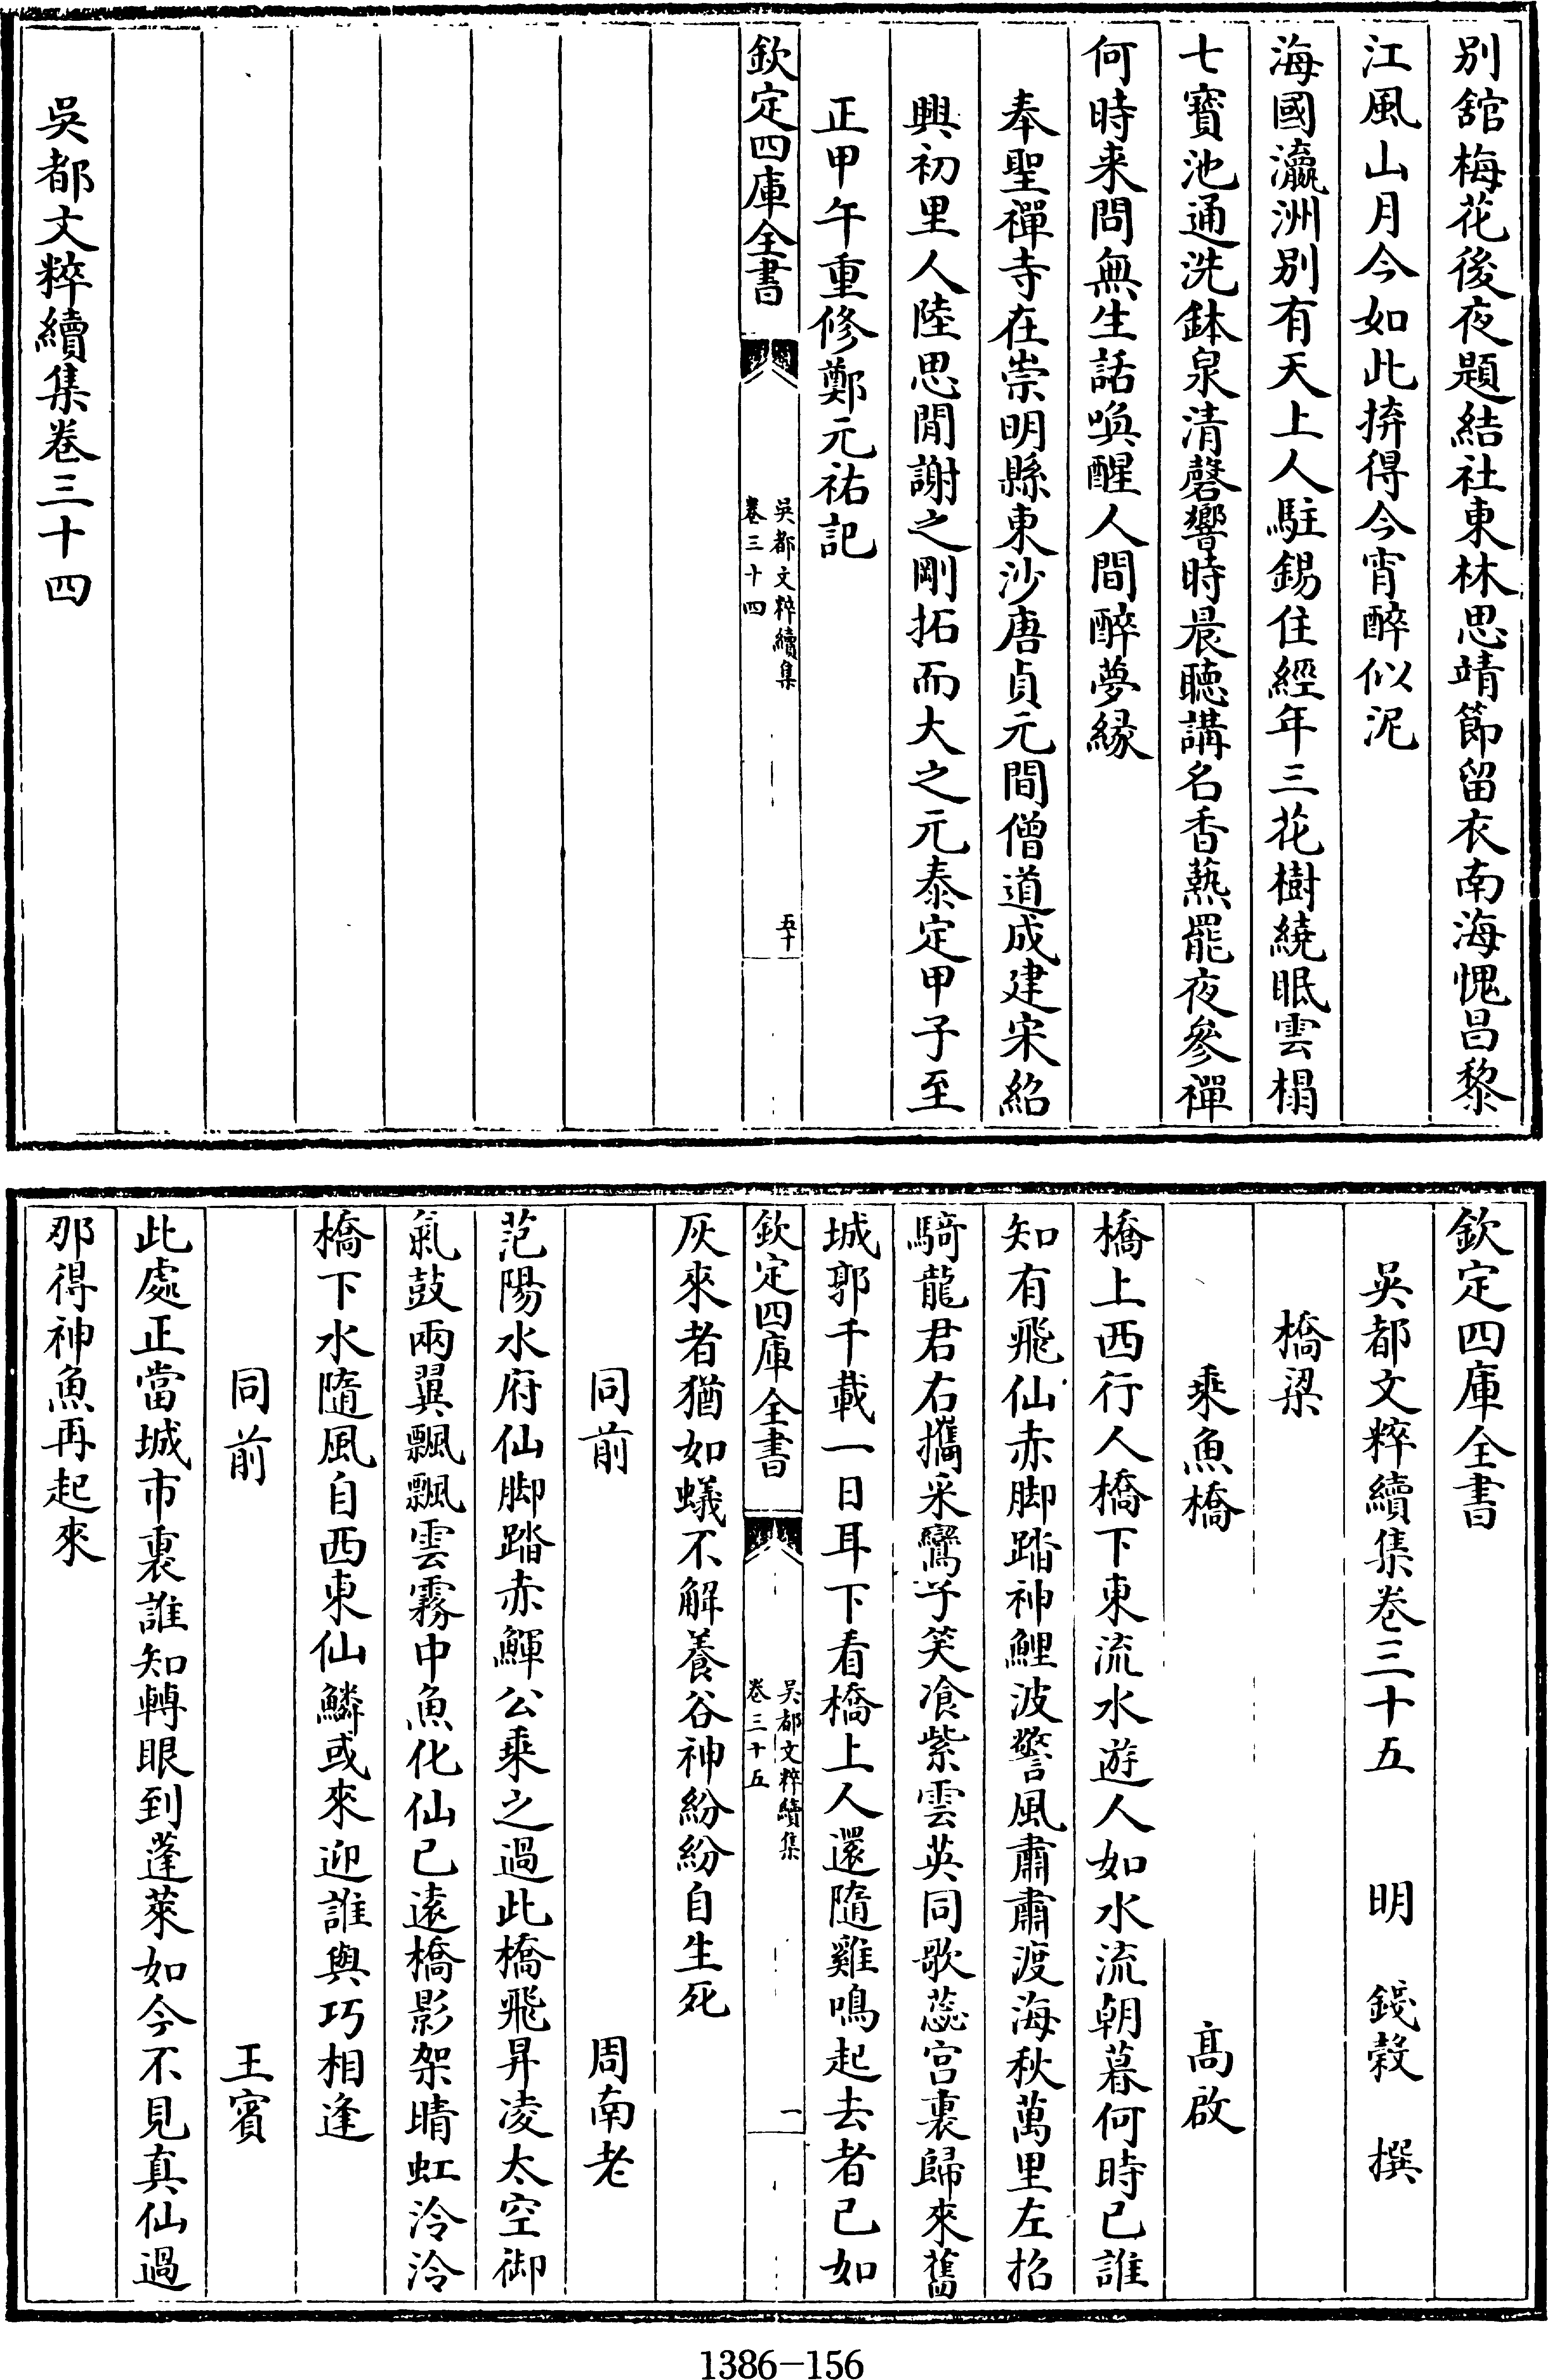 別舘梅花後夜題結社東林思靖節留衣南海愧昌黎
江風山月今如此拚得今宵醉似泥
海國瀛洲別有天上人駐錫住經年三花樹繞眠雲榻
七寳池通洗鉢泉清磬響時晨聽講名香爇罷夜參禪
何時来問無生話喚醒人間醉夢緣
奉聖禪寺在崇明縣東沙唐貞元間僧道成建宋紹
興初里人陸思閒謝之剛拓而大之元泰定甲子至
正甲午重修鄭元祐記
欽定四庫全書
吳都文粹續集
卷三十四
五十
吳都文粹續集卷三十四
欽定四庫全書
吳都文粹續集卷三十五 明 錢穀 撰
橋梁
乘魚橋 高啟
橋上西行人橋下東流水遊人如水流朝暮何時已誰
知有飛仙赤脚踏神鯉波驚風肅肅渡海秋萬里左招
騎龍君右攜采鸞子笑飡紫雲英同歌蕊宮裏歸來舊
城郭千載一日耳下看橋上人還隨雞鳴起去者已如
欽定四庫全書
吳都文粹續集
卷三十五
一
灰來者猶如蟻不解養谷神紛紛自生死
同前 周南老
范陽水府仙脚踏赤鯶公乘之過此橋飛昇凌太空御
氣鼓兩翼飄飄雲霧中魚化仙已遠橋影架晴虹泠泠
橋下水隨風自西東仙鱗或來迎誰與巧相逢
同前 王賓
此處正當城市裏誰知轉眼到蓬萊如今不見真仙過
那得神魚再起來
1386-156